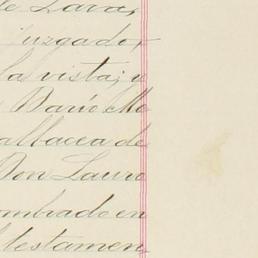 de Lara,
juzgador
la vista; y
Darío Mo
albacea de
Don Lauro
ombrado en
l testamen